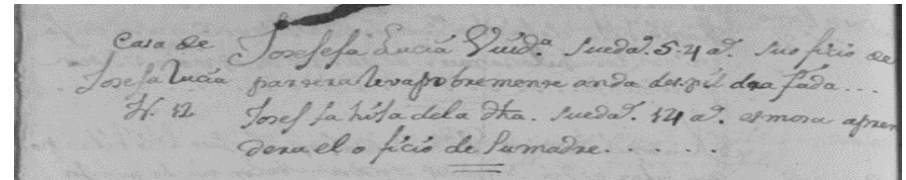 Casa de
Josefa Lucia
N. 12
Josefefa Lucia Vuid.ª suedaᵈ. 54 aˢ. su oficio de
partera levapobremente anda despil drafada...
Josef fa hija dela dha. suedaᵈ. 14 aˢ. es mosa apren
dera el o ficio de sumadre. . . . . .